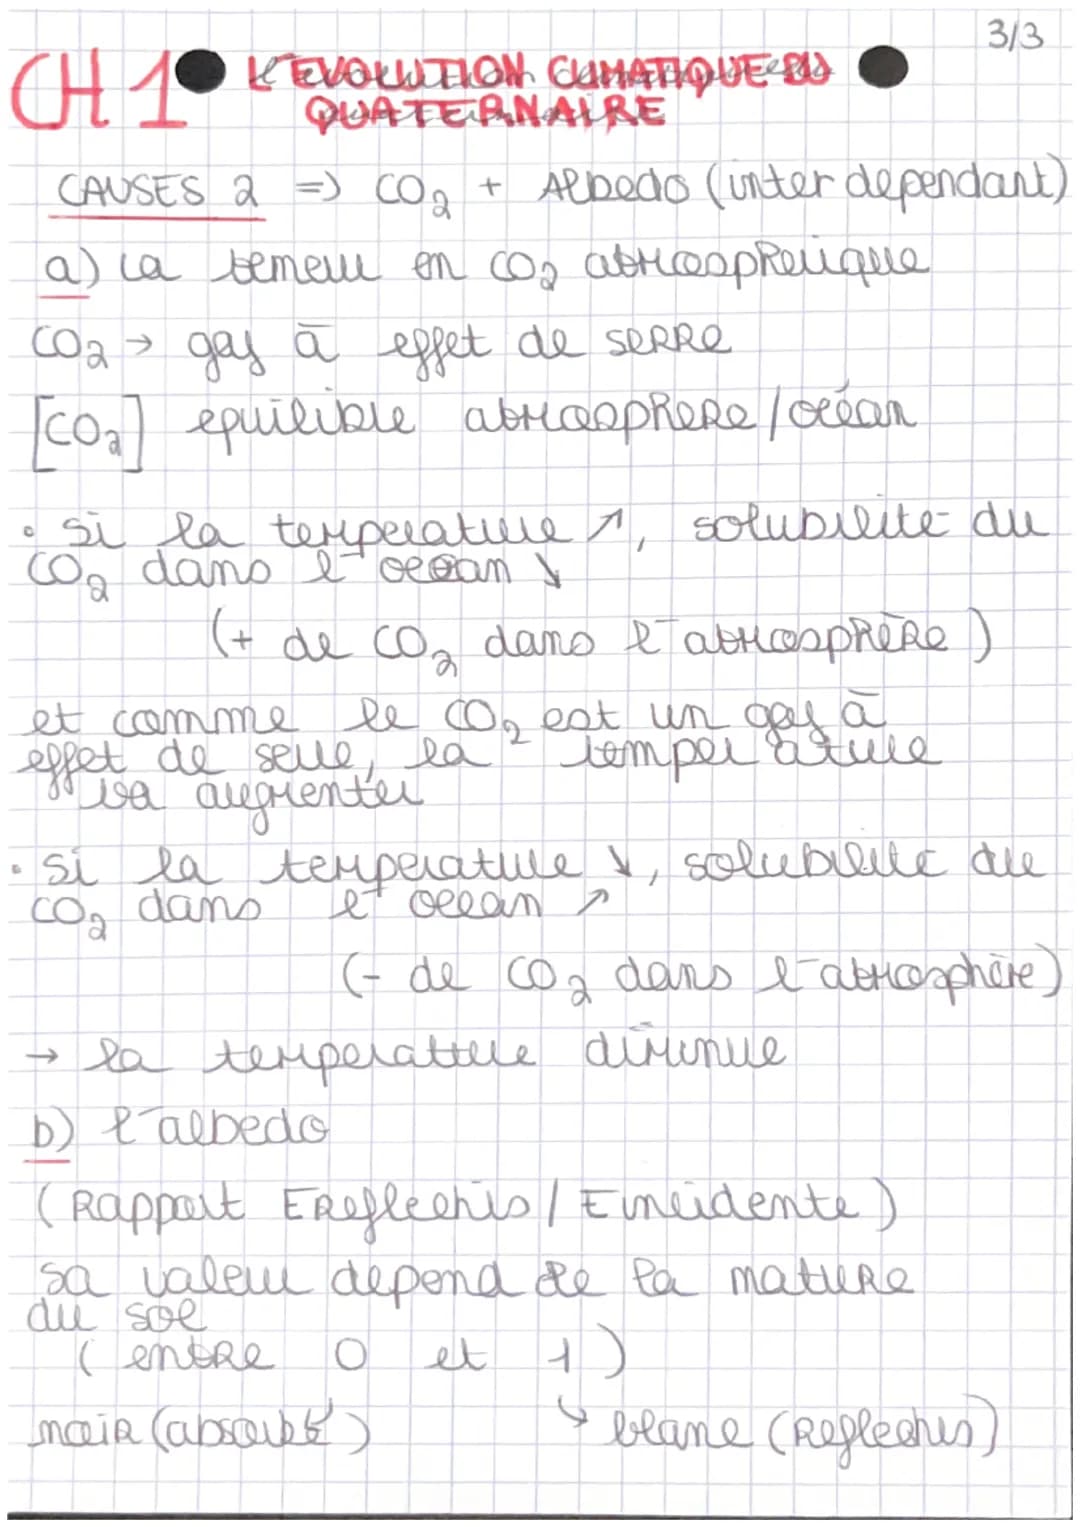 3/3
CH 1 L'EVOLUTION CLIMATIQUE DU
QUATERNAIRE
CAUSES 2 => CO2 + Albedo (inter dependant)
a) la teneur en CO2 atmospherique
CO2 → gaz à effet de serre
[CO2] equilibre atmosphere / océan
• si la temperature ↗, solubilite du
CO2 dans l'ocean ↘
(+ de CO2 dans l'atmosphère)
et comme le CO2 est un gaz à
effet de serre, la temperature
va augmenter
• si la temperature ↘, solubilité du
CO2 dans l'ocean ↗
(- de CO2 dans l'atmosphère)
→ la temperature diminue
b) l'albedo
(Rapport Ereflechis / Eincidente)
sa valeur depend de la nature
du sol
(entre 0 et 1)
noir (absorbé) ↳ blanc (Reflechis)